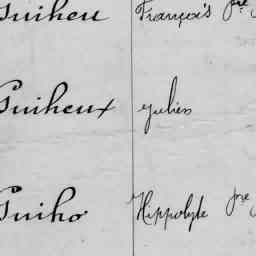 Guiheu François pre
Guiheux Julien
Guiho Hippolyte pre